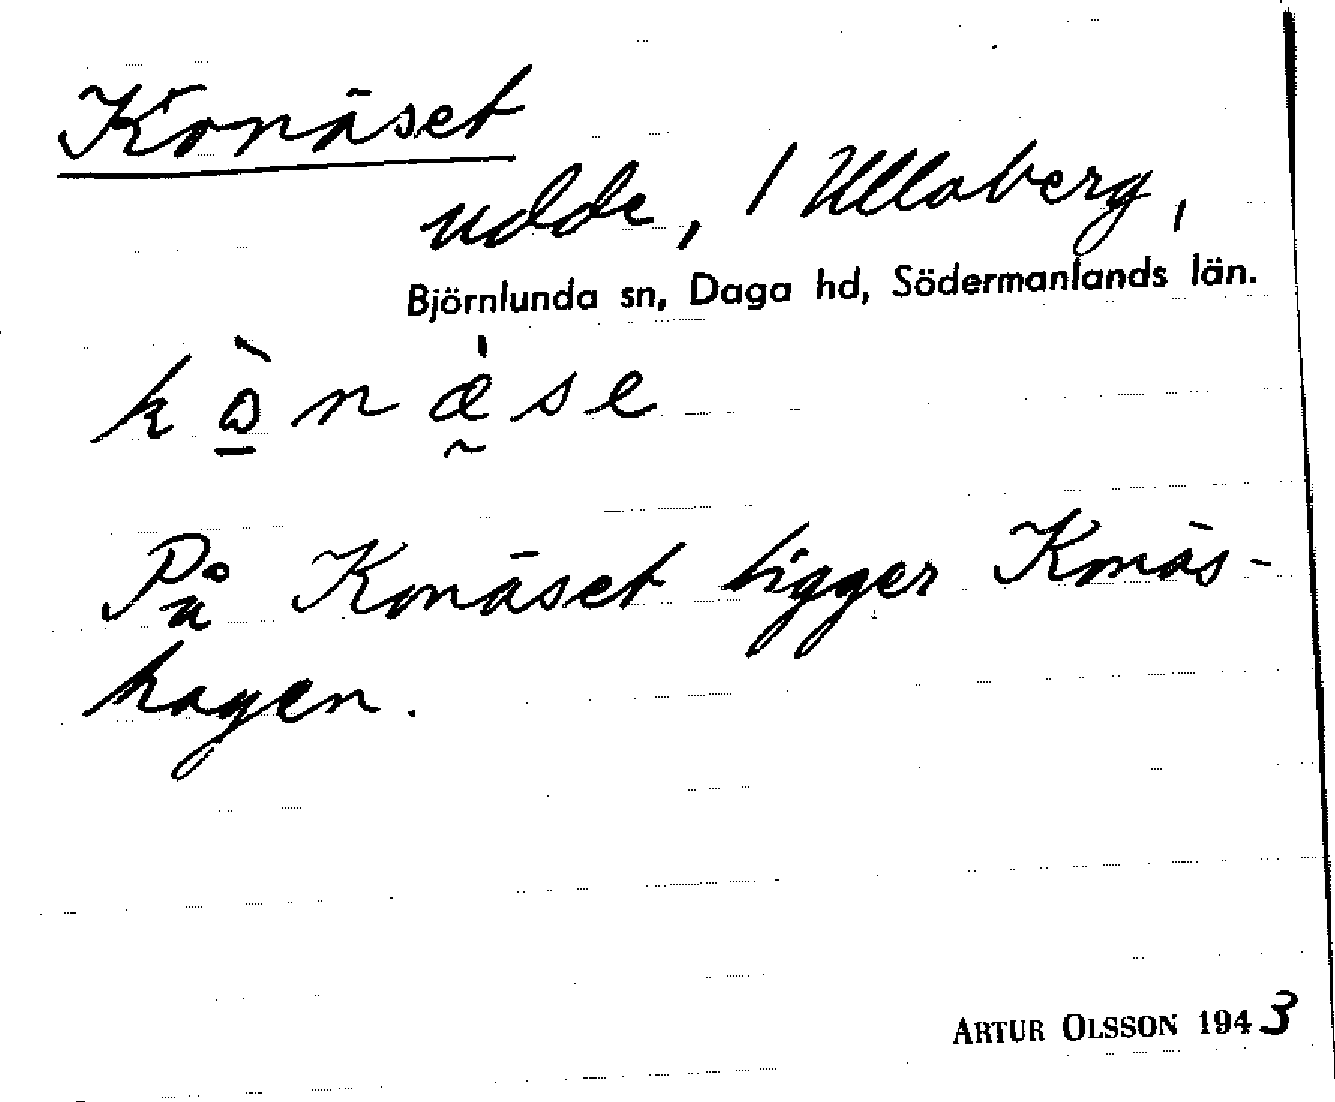 Konäset
udde, 1 Ullaberg,
Björnlunda sn, Daga hd, Södermanlands län.
På Konäset ligger Konäs-
hagen.
ARTUR OLSSON 1943